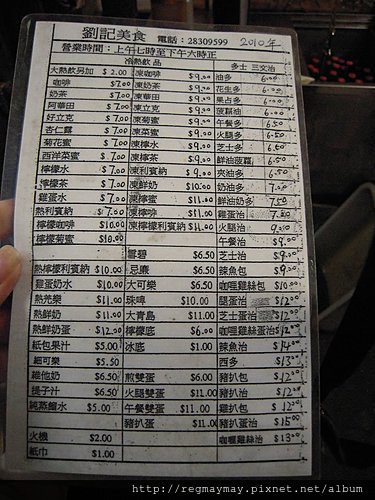 劉記美食 電話：28309599 2010年
營業時間：上午七時至下午六時正
冷熱飲品 多士 三文治
大熱飲另加 $2.00 凍咖啡 $9.00 油多 6.00
咖啡 $7.00 凍奶茶 $9.00 花生多 6.00
奶茶 $7.00 凍華田 $9.00 果占多 6.00
阿華田 $7.00 凍立克 $9.00 菠蘿油 6.00
好立克 $7.00 凍菊蜜 $9.00 午餐多 6.50
杏仁露 $7.00 凍菜蜜 $9.00 火腿多 6.50
菊花蜜 $7.00 凍檸水 $9.00 芝士多 6.50
西洋菜蜜 $7.00 凍檸茶 $9.00 鮮油菠蘿 6.50
檸檬水 $7.00 凍利賓納 $9.00 夾油多 6.50
檸檬茶 $7.00 凍鮮奶 $10.00 奶油多 7.00
雞蛋水 $7.00 凍檸蜜 $11.00 鮮油奶多 7.50
熱利賓納 $7.00 凍檸啡 $11.00 雞蛋治 7.00
檸檬咖啡 $10.00 凍檸檬利賓納 $11.00 火腿治 9.00
檸檬菊蜜 $10.00 午餐治 $9.00
雪碧 $6.50 芝士治 $9.00
熱檸檬利賓納 $10.00 忌廉 $6.50 辣魚包 $9.00
雞蛋奶水 $10.00 大可樂 $6.50 咖喱雞絲包 $10.00
熱克樂 $11.00 珠啤 $10.00 腿蛋治 $12.00
熱鮮奶 $11.00 大青島 $11.00 芝士蛋治 $12.00
熱鮮奶蛋 $12.00 檸檬底 $6.00 咖喱雞絲蛋治 $12.00
紙包果汁 $5.00 冰底 $1.00 辣魚治 $14.00
細可樂 $5.50 西多 $13.00
維他奶 $6.50 煎雙蛋 $6.00 豬扒包 $12.00
提子汁 $6.50 火腿雙蛋 $11.00 豬扒治 $12.00
純蒸餾水 $5.00 午餐雙蛋 $11.00 雞扒包 $12.00
豬扒蛋 $11.00 豬扒蛋治 $15.00
火機 $2.00 咖喱雞絲治 $13.00
紙巾 $1.00
http://regmaymay.pixnet.net/album